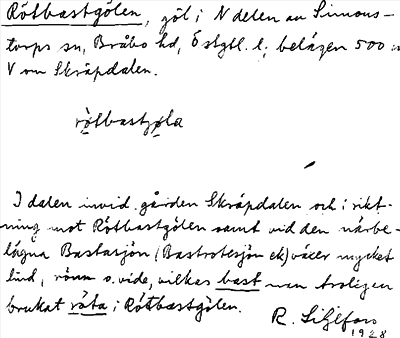 Rötbastgölen, göl i N delen av Simons-
torps sn, Bråbo hd, Östgtl. l; belägen 500 m
V om Skräpdalen.
rötbastgöla
I dalen invid gården Skräpdalen och i rikt-
ning mot Rötbastgölen samt vid den närbe-
lägna Bastasjön (Bastrotesjön ek) växer mycket
lind, rönn o. vide, vilkas bast man troligen
brukat röta i Rötbastgölen.
R. Liljefors
1928